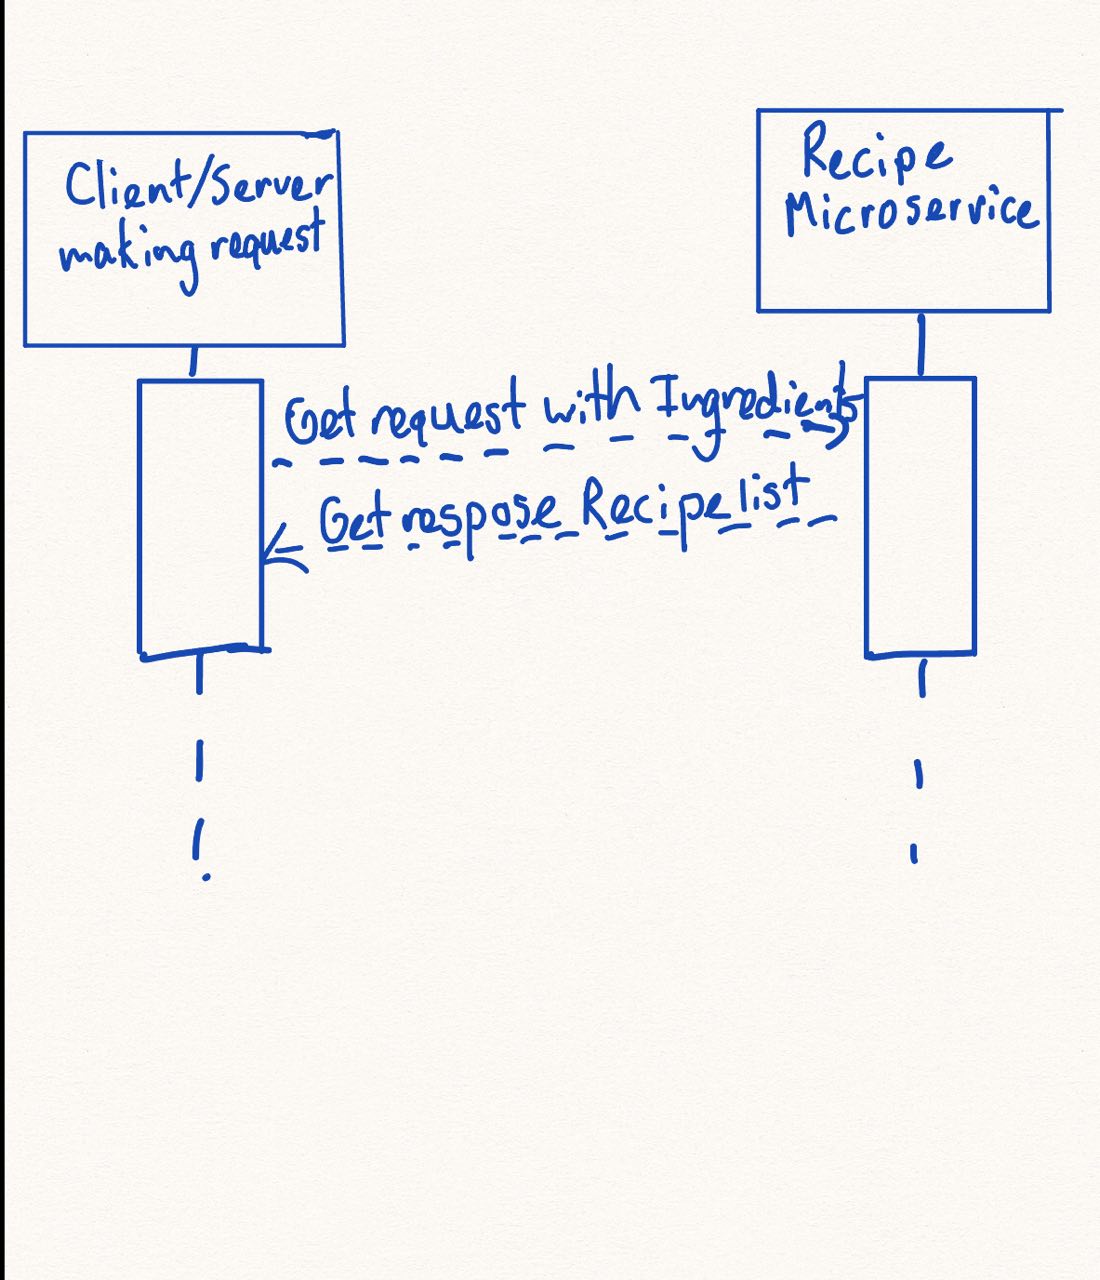 Client/Server
making request
Recipe
Microservice
Get request with Ingredients
Get respose Recipe list